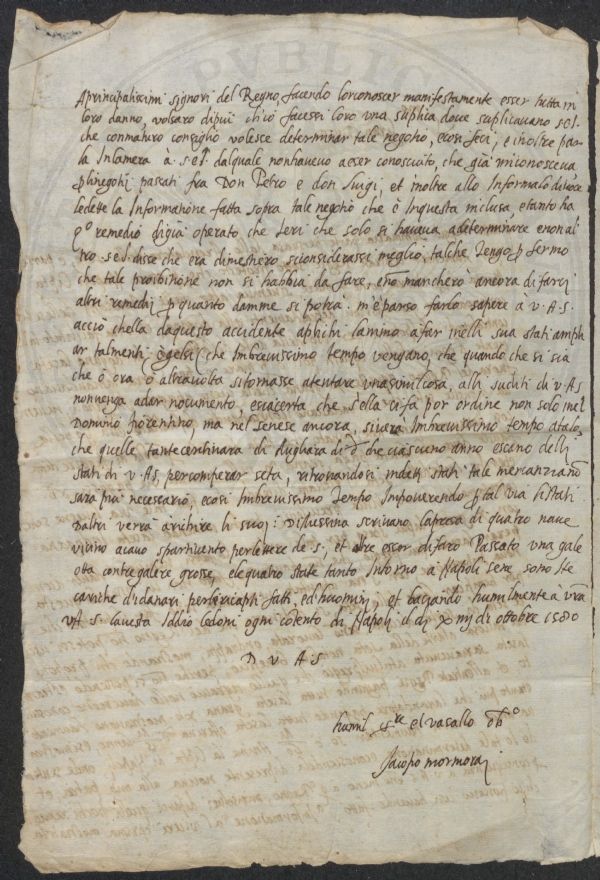 PVBLIC
A principalissimi signori del Regno, facendo lor conoscer manifestamente esser tutta in
loro danno, volsaro dipui ch'io facessi loro una suplica dove suplicavano s.e.I.
che con maturo consiglio volesse determinar tale negotio, e cosi feci, e inoltre par-
la Insamera a. s.eI. dal quale non havevo a esser conosciuto, che già mi conosceva
p li negotij passati fra Don Petro e don luigi, et inoltre allo Informalo di voce
le dette la Informatione fatta sopra tale negotio che è Inquesta inclusa, e tanto ha
q.o remedio di già operato che Ieri che solo si haveva a determinare e non al
tro s.eI. disse che era di mestiero si considerassi meglio, talche Tengo p fermo
che tale proibitione non si habbia da fare, e no mancherò ancora di farci
altri remedij p quanto da mme si potrà. m'è parso farlo sapere à v.A.S.
acciò ch ella da questo accidente aplichi l'animo à far nelli sua stati ampli
ar talmenti è gelsi che Imbrevissimo tempo vengano, che quando che si sia
che ò ora ò altra volta si tornasse a tentare una simil cosa, alli suditi di v.AS
non venga a dar nocumento, e sia certa che s'ella ci fa por ordine non solo inel
Dominio fiorentino, ma nel senese ancora, si verà Imbrevissimo tempo a tale,
che quelle tante centinara di migliara di che ciascuno anno escano delli
stati di v.AS, per comperar seta, ritrovandosi indetti stati tale mercanzia no
sarà più necessario, e cosi Imbrevissimo Tempo Impoverendo p tal via li stati
D'altri verrà a richire li suoj: Di Messina scrivano la presa di quatro nave
vicino a cavo spartivento per lettere de s., et oltre esser di faro Passato una gale
otta contre galere grosse, e le quatro state tanto Intorno à Napoli se ne sono Ite
cariche di danari per li ricapti fatti, ed huominj; et baciando humilmente a vra
v.A.S. la vesta Iddio le doni ogni contento di Napoli il dj x iiij di ottobre 1580
D V A S
humil s.re el vasallo ob.o
Jacopo mormoraj